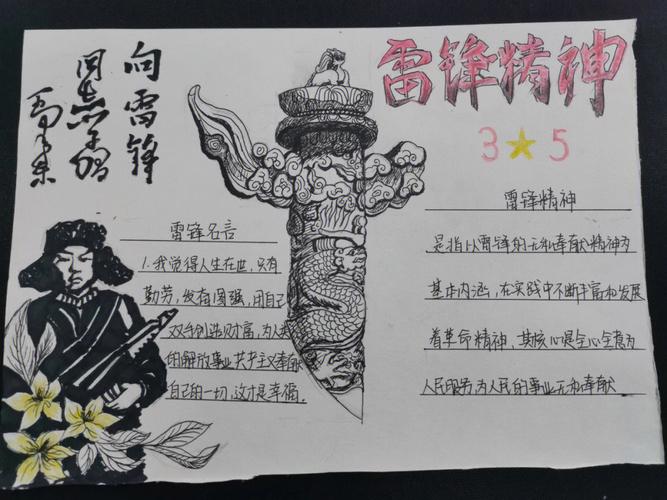 向雷锋
同志学习
毛泽东
雷锋精神
3★5
雷锋名言
1.我觉得人生在世,只有
勤劳,发奋图强,用自己
双手创造财富,为人
的解放事业共产主义奉献
自己的一切,这才是幸福.
雷锋精神
是指以雷锋的无私奉献精神为
基本内涵,在实践中不断丰富和发展
着革命精神、其核心是全心全意为
人民服务为人民的事业无私奉献